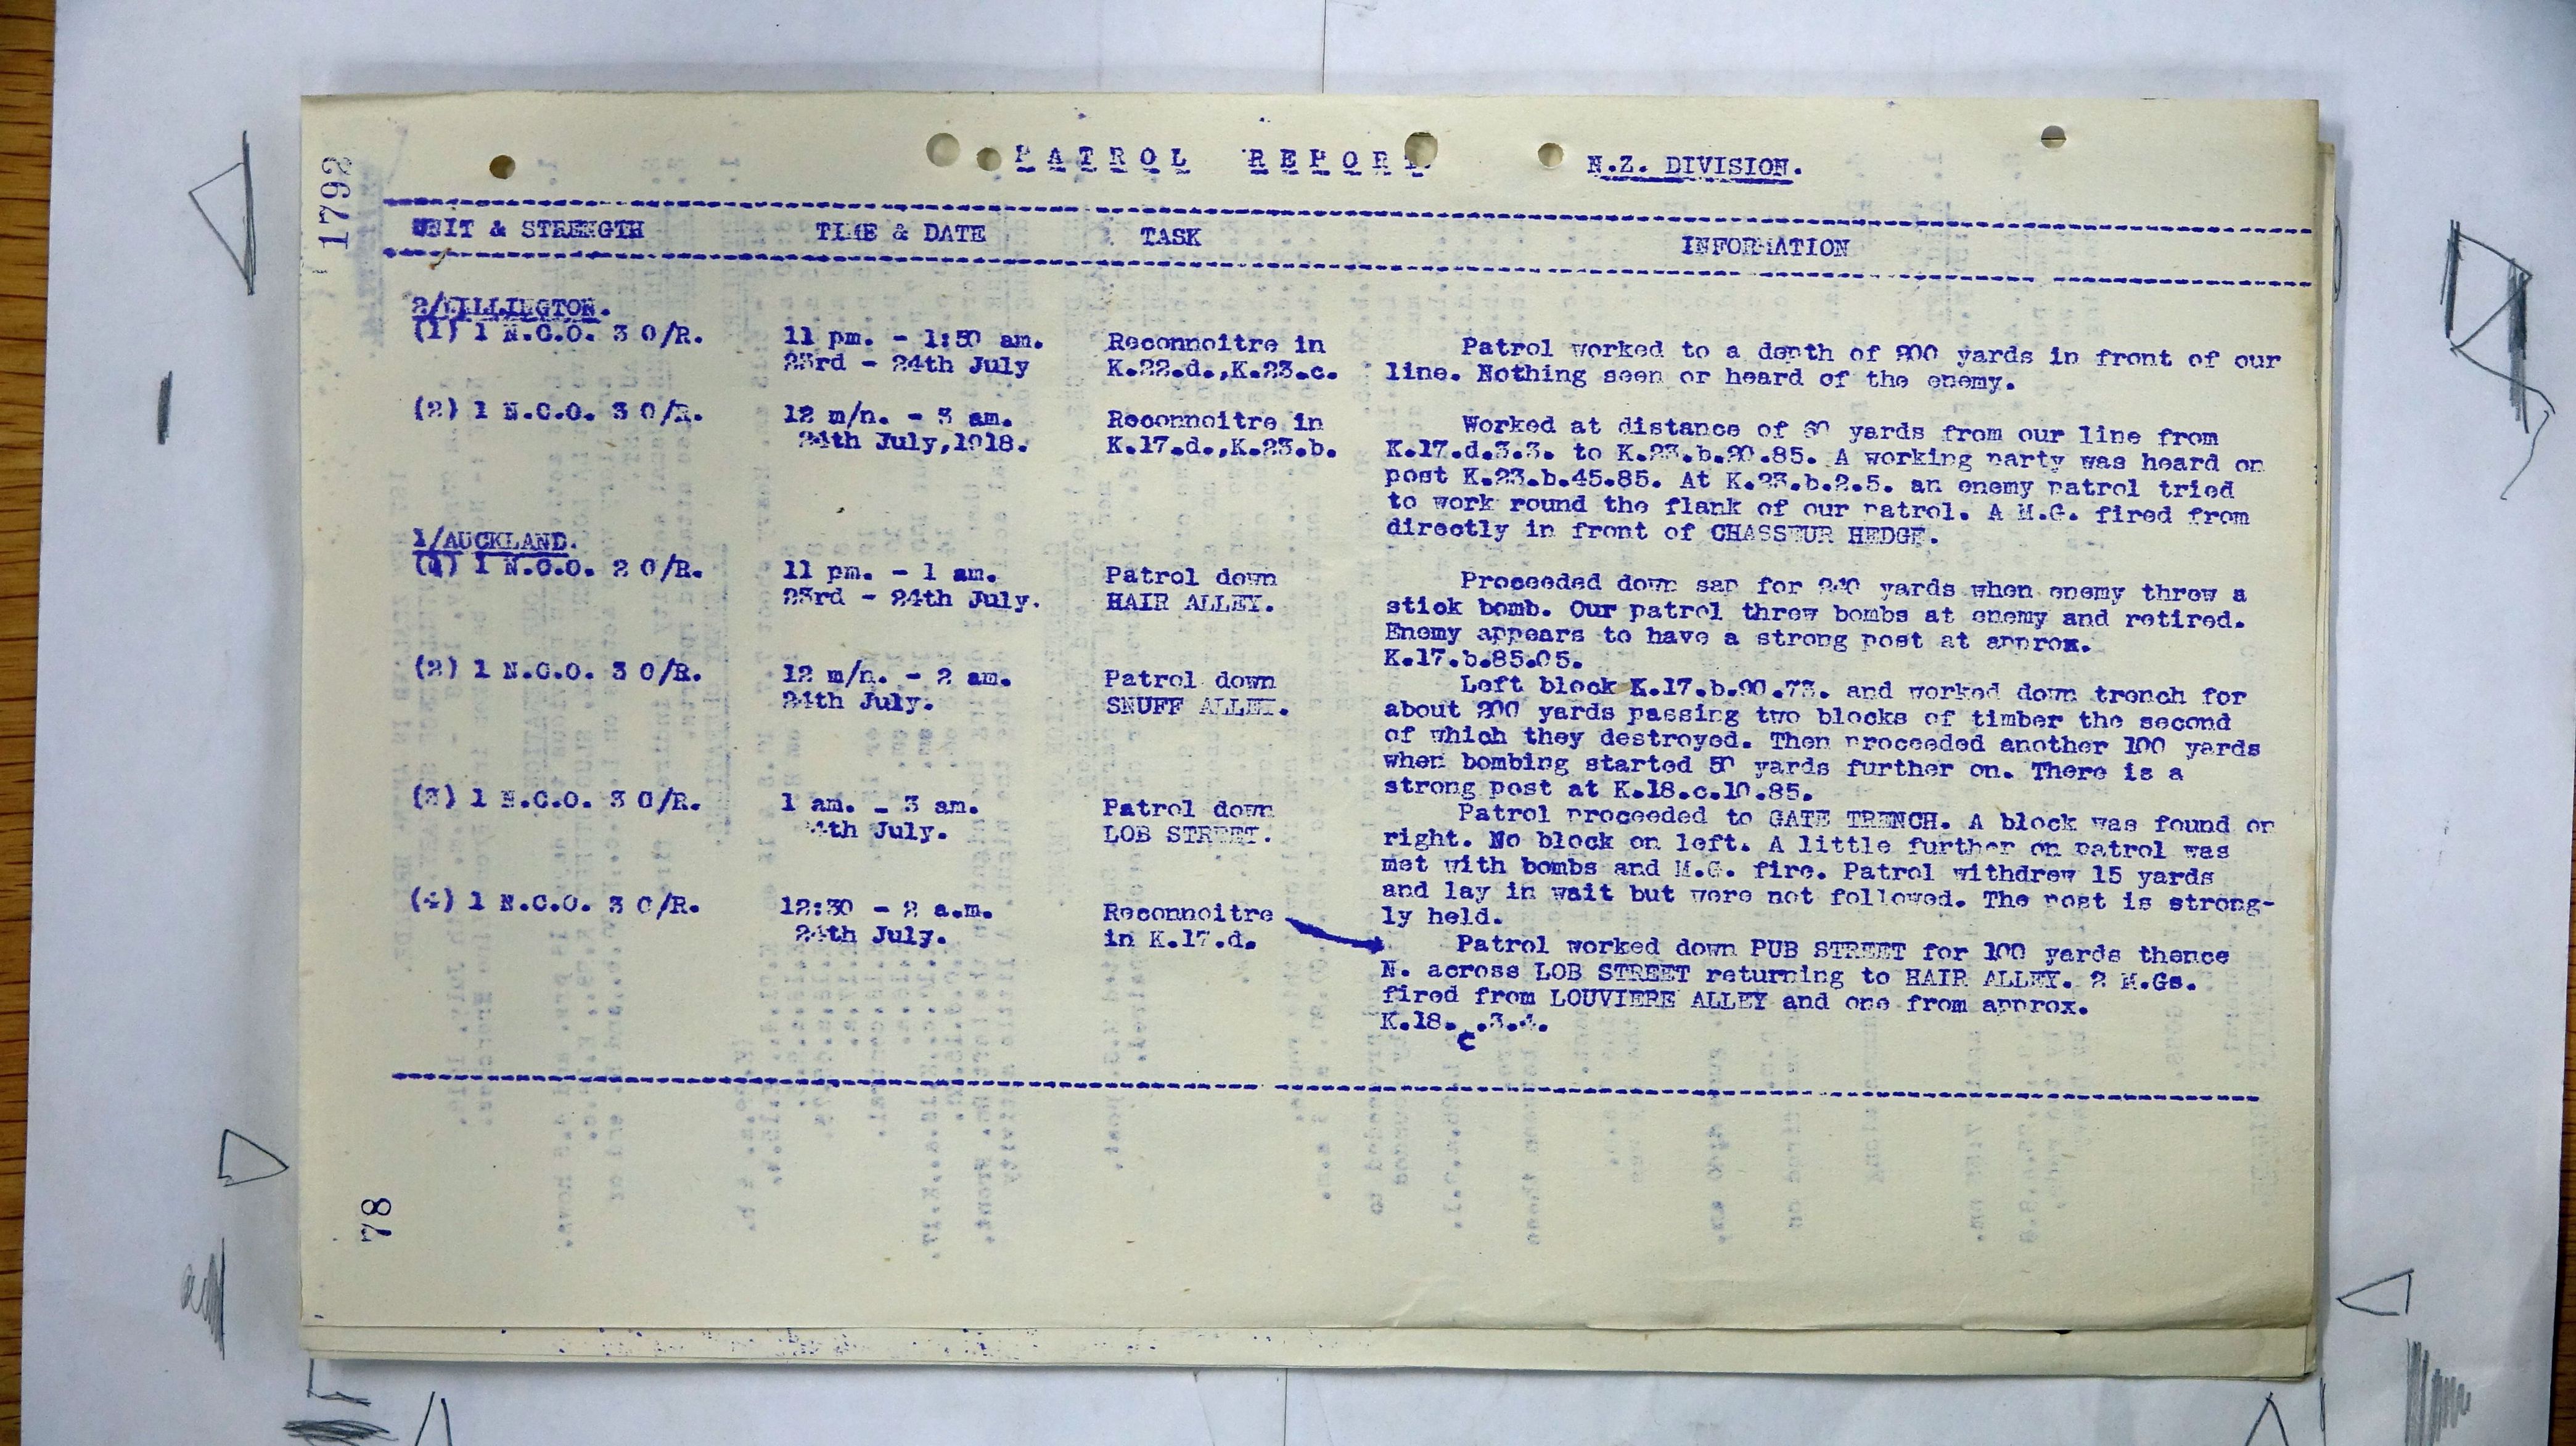 1792
PATROL REPORT N.Z. DIVISION.
UNIT & STRENGTH TIME & DATE TASK INFORMATION
2/WELLINGTON.
(1) 1 N.C.O. 3 O/R. 11 pm. - 1:50 am. Reconnoitre in Patrol worked to a depth of 200 yards in front of our
23rd - 24th July K.22.d.,K.23.c. line. Nothing seen or heard of the enemy.
(2) 1 N.C.O. 3 O/R. 12 m/n. - 3 am. Reconnoitre in Worked at distance of yards from our line from
24th July,1918. K.17.d.,K.23.b. K.17.d.3.3. to K.23.b.20.85. A working party was heard on
post K.23.b.45.85. At K.23.b.2.5. an enemy patrol tried
to work round the flank of our patrol. A M.G. fired from
directly in front of CHASSEUR HEDGE.
1/AUCKLAND.
(1) 1 N.C.O. 2 O/R. 11 pm. - 1 am. Patrol down Proceeded down sap for 240 yards when enemy threw a
23rd - 24th July. HAIR ALLEY. stick bomb. Our patrol threw bombs at enemy and retired.
Enemy appears to have a strong post at approx.
K.17.b.85.05.
(2) 1 N.C.O. 3 O/R. 12 m/n. - 2 am. Patrol down Left block K.17.b.90.73. and worked down trench for
24th July. SNUFF ALLEY. about 200 yards passing two blocks of timber the second
of which they destroyed. Then proceeded another 100 yards
when bombing started 50 yards further on. There is a
strong post at K.18.c.10.85.
(3) 1 N.C.O. 3 O/R. 1 am. - 3 am. Patrol down Patrol proceeded to GATE TRENCH. A block was found on
24th July. LOB STREET. right. No block on left. A little further on patrol was
met with bombs and M.G. fire. Patrol withdrew 15 yards
and lay in wait but were not followed. The post is strong-
ly held.
(4) 1 N.C.O. 3 O/R. 12:30 - 2 a.m. Reconnoitre Patrol worked down PUB STREET for 100 yards thence
24th July. in K.17.d. N. across LOB STREET returning to HAIR ALLEY. 2 M.Gs.
fired from LOUVIERE ALLEY and one from approx.
K.18.c.3.4.
78